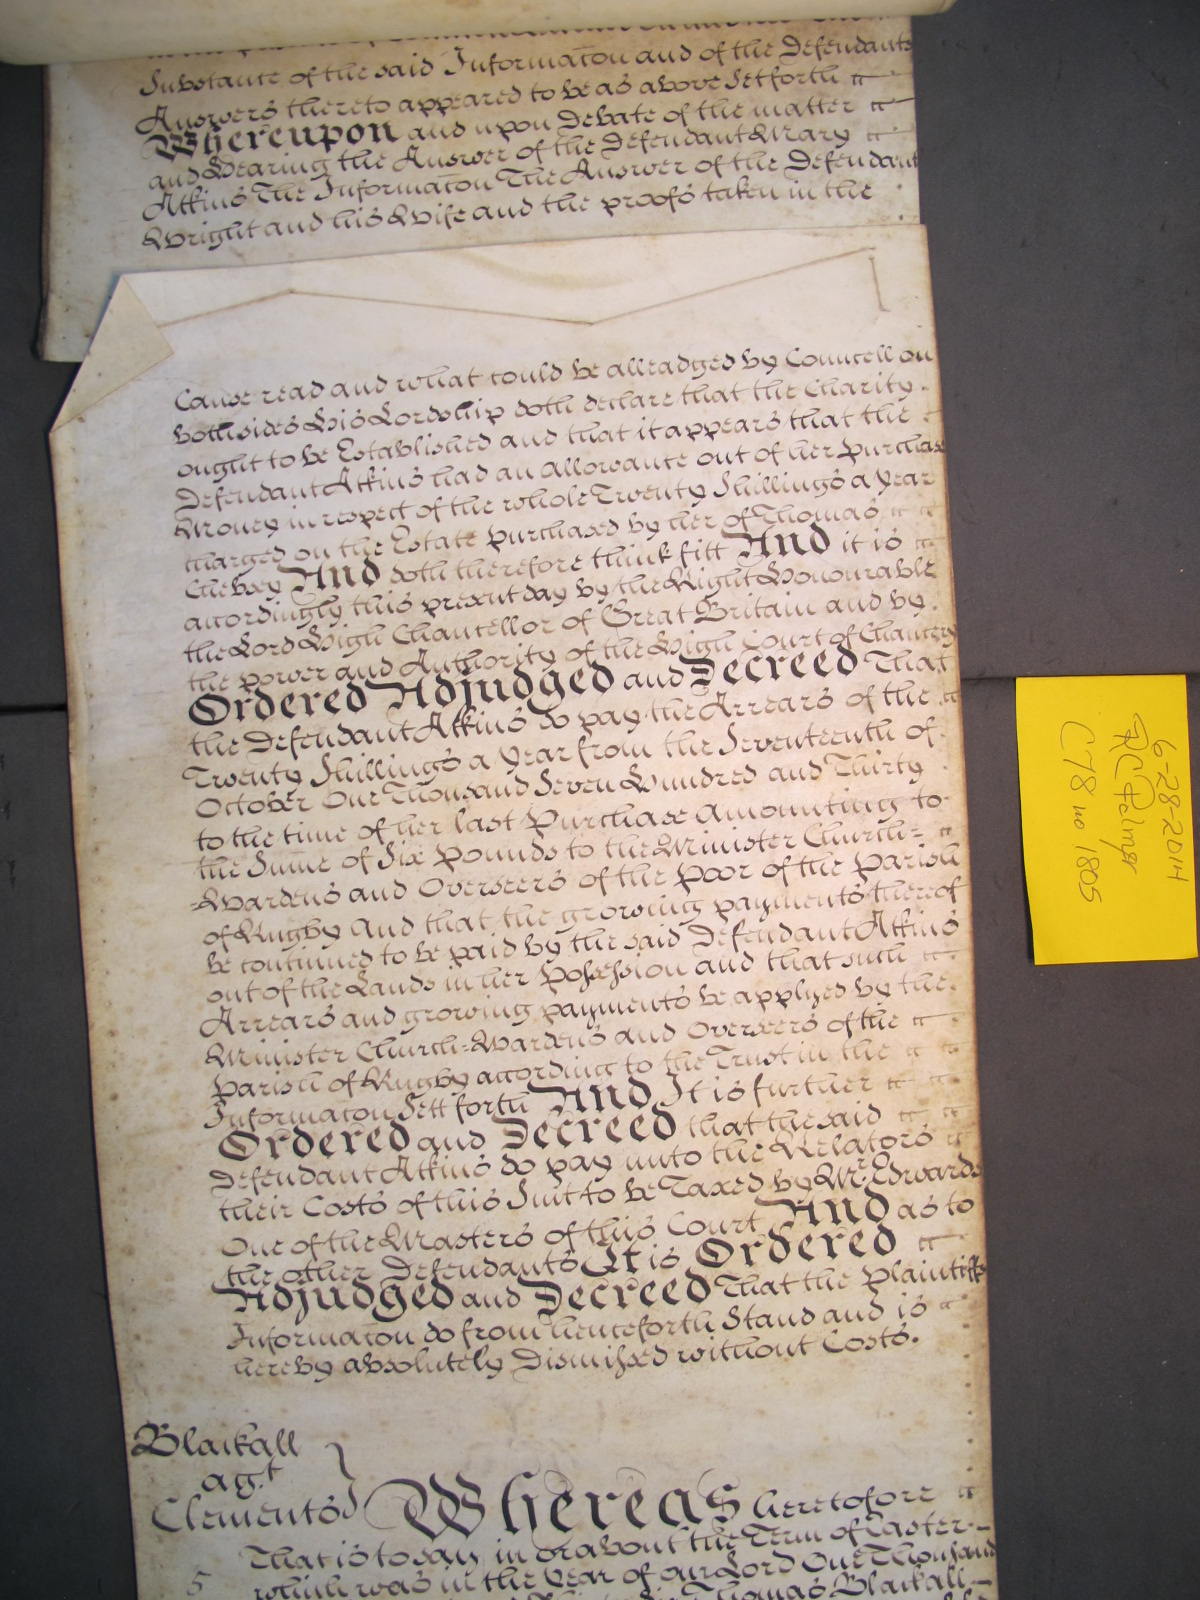 Substance of the said Informacon and of the Defendants
Answers thereto appeared to be as above Setforth
Whereupon and upon Debate of the matter
and Hearing the Answer of the Defendant Mary
Atkins The Informacon The Answer of the Defendant
Wright and his Wife and the proofs taken in the
Cause read and what could be alleadged by Councell on
both sides His Lordship doth declare that the Charity
ought to be Established and that it appears that the
Defendant Atkins had an Allowance out of her Purchase
Money in respect of the whole Twenty Shillings a Year
charged on the Estate purchased by her of Thomas
Chebsey And doth therefore think fitt And it is
accordingly this present day by the Right Honourable
the Lord High Chancellor of Great Britain and by
the power and Authority of the High Court of Chancery
Ordered Adjudged and Decreed That
the Defendant Atkins do pay the Arrears of the
Twenty Shillings a Year from the Seventeenth of
October One Thousand Seven Hundred and Thirty
to the time of her last Purchase Amounting to
the Sume of Six Pounds to the Minister Church=
=Wardens and Overseers of the Poor of the Parish
of Rugby And that the growing payments thereof
be continued to be paid by the said Defendant Atkins
out of the Lands in her Possession and that such
Arrears and growing payments be applyed by the
Minister Church=Wardens and Overseers of the
Parish of Rugby according to the Trust in the
Informacon Sett forth And It is further
Ordered and Decreed that the said
Defendant Atkins do pay unto the Relators
their Costs of this Suit to be Taxed by Mr. Edwards
One of the Masters of this Court And as to
the other Defendants It is Ordered
Adjudged and Decreed That the Plaintiffs
Informacon do from henceforth Stand and is
hereby absolutely Dismissed without Costs.
Blackall
agt
Clements
Whereas heretofore
That is to say in or about the Term of Easter
5
which was in the Year of our Lord One Thousand
Thomas Blackall
6-28-2014
RCPalmer
C78 no 1805